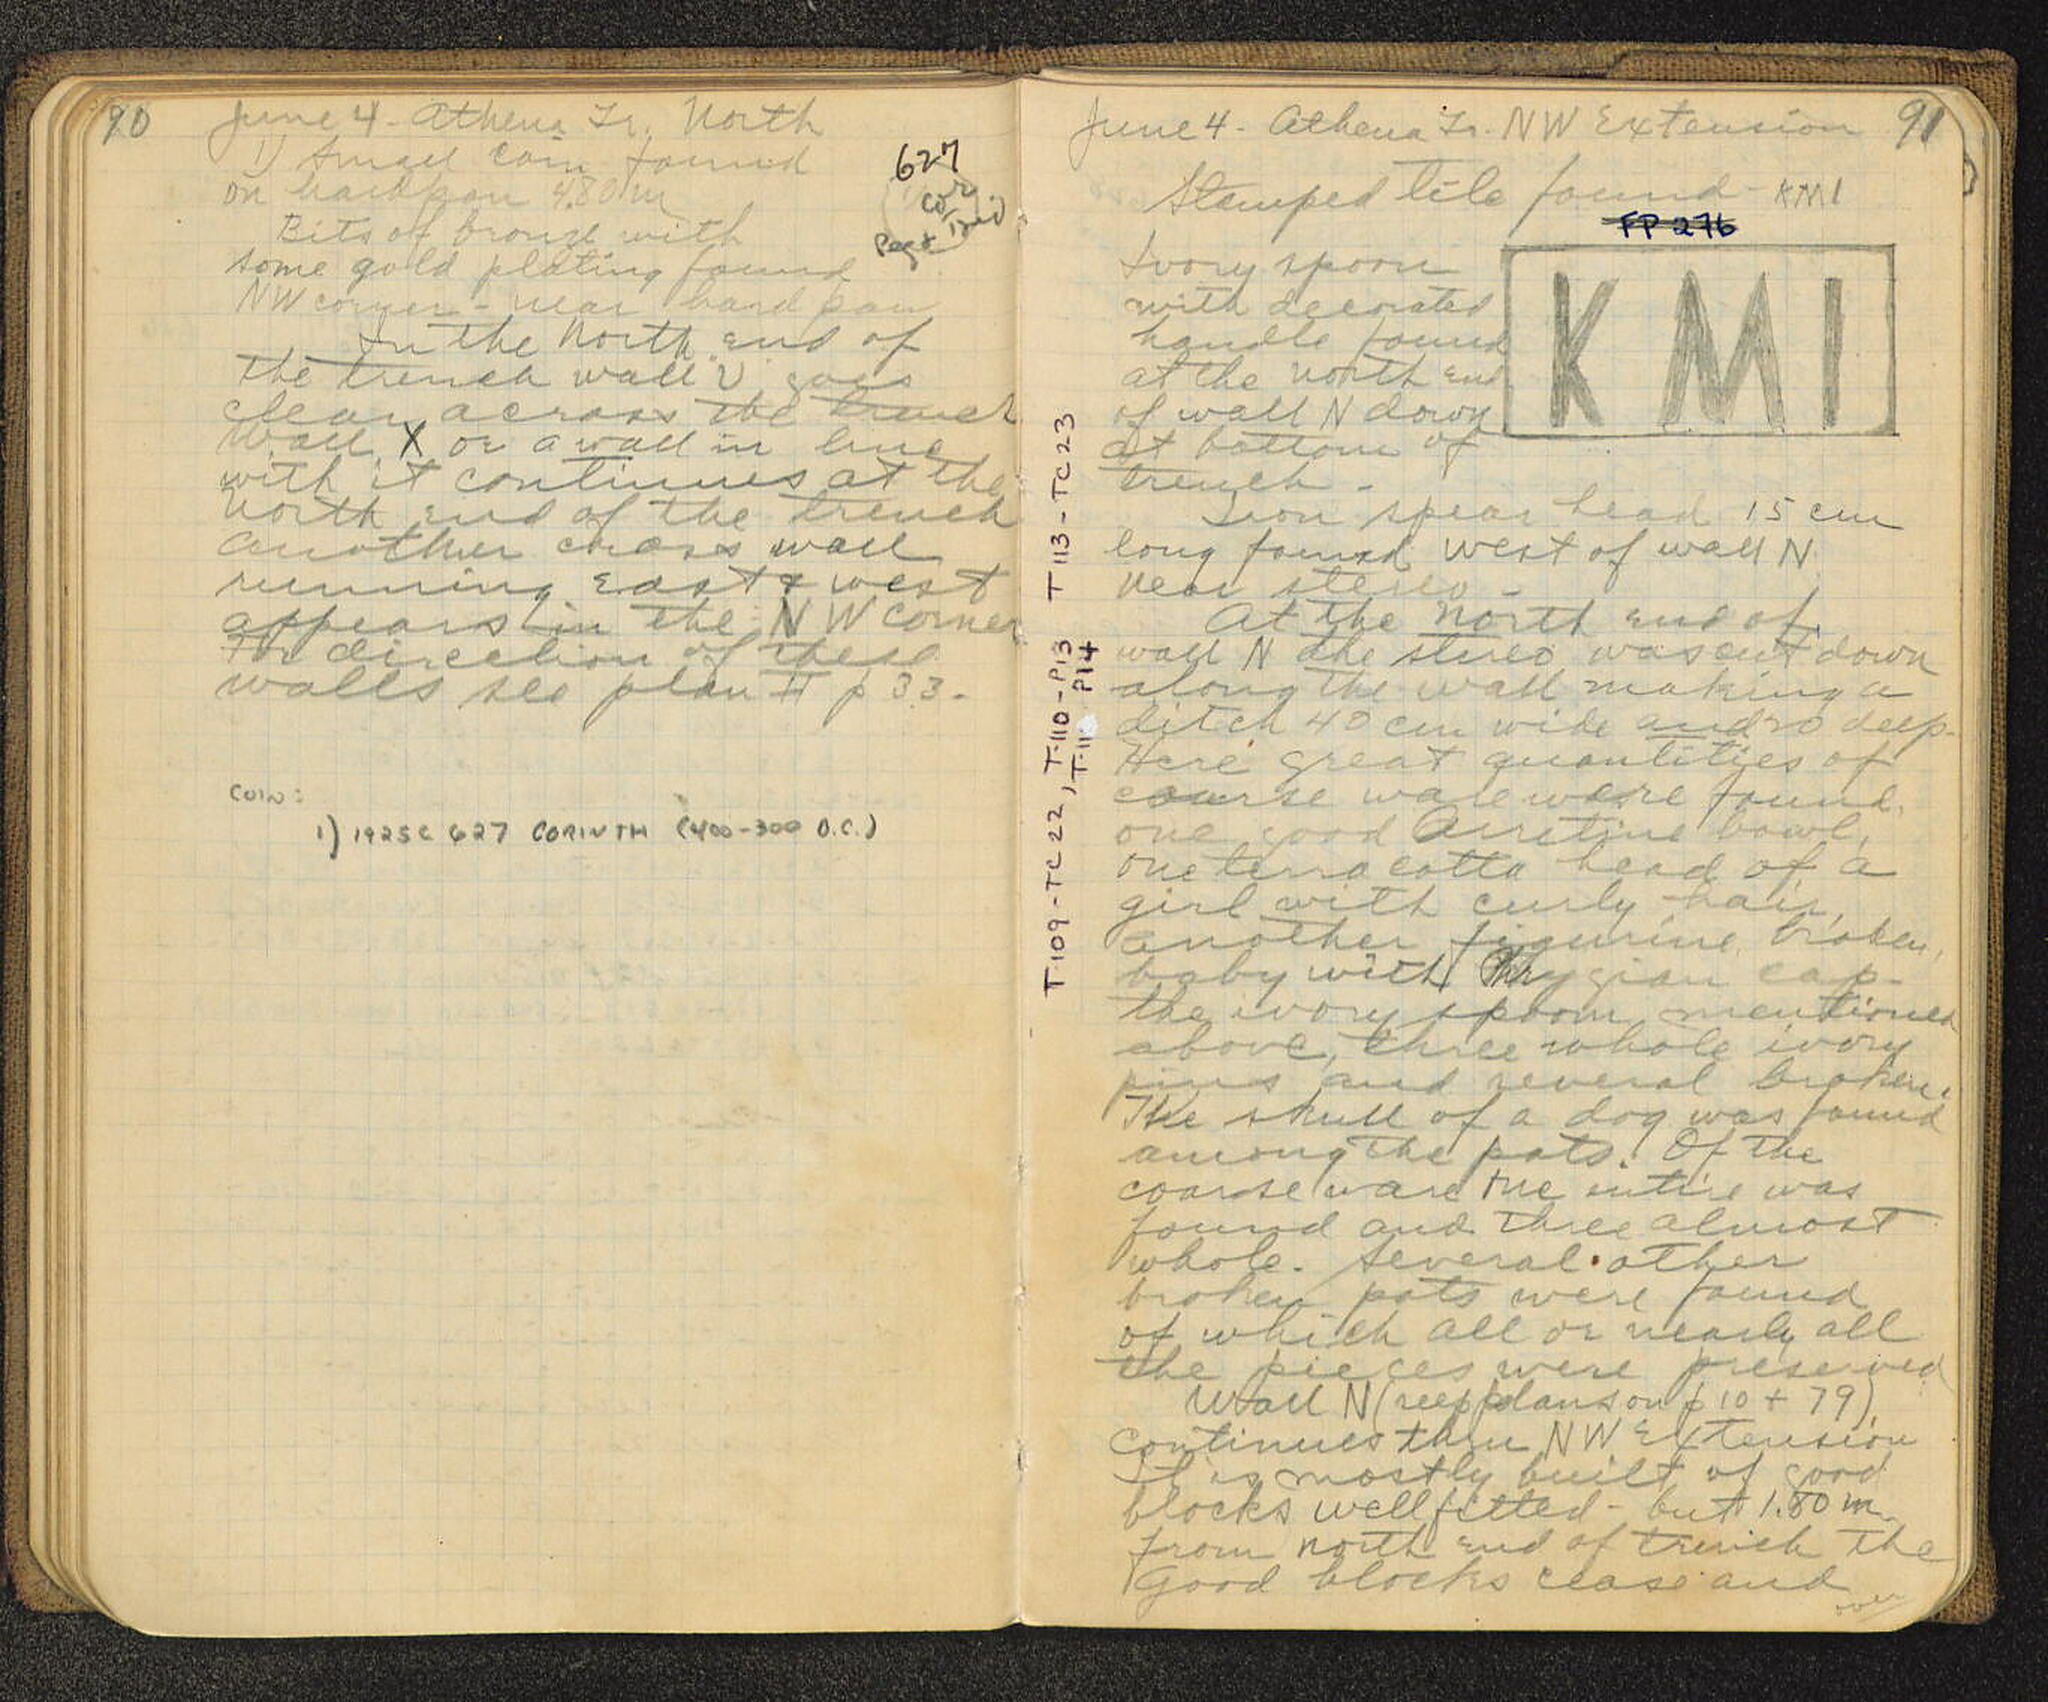 90
June 4 - Athena Tr. North
1) Small coin found
on hardpan 4.80 m
Bits of bronze with
some gold plating found
NW corner - near hard pan
In the North end of
the trench wall "U" goes
clear across the trench
Wall X or a wall in line
with it continues at the
North end of the trench
another cross wall
running east & west
appears in the NW corner
For direction of these
walls see plan II p 33.
627
Cor
Peg & Trid
COIN:
1) 1925C 627 CORINTH (400-300 B.C.)
June 4 - Athena Tr. NW Extension 91
Stamped tile found - KMI
FP 276
KMI
Ivory spoon
with decorated
handle found
at the north end
of wall N down
at bottom of
trench -
Iron spear head 15 cm
long found west of wall N
near stereo -
At the North end of
wall N the stereo was cut down
along the wall making a
ditch 40 cm wide and 20 deep.
Here great quantities of
course ware were found,
one good Arretine bowl,
one terra cotta head of a
girl with curly hair,
another figurine, broken,
baby with Phrygian cap -
the ivory spoon mentioned
above, three whole ivory
pins and several broken.
The skull of a dog was found
among the pots. Of the
coarse ware one entire was
found and three almost
whole. Several other
broken pots were found
of which all or nearly all
the pieces were preserved
Wall N (see plans on p 10 + 79)
continues thru NW Extension
It is mostly built of good
blocks well fitted - but 1.80 m
from north end of trench the
Good blocks cease and
over
T109-TC22, T.110-P13 T113-TC23
T.110 P14